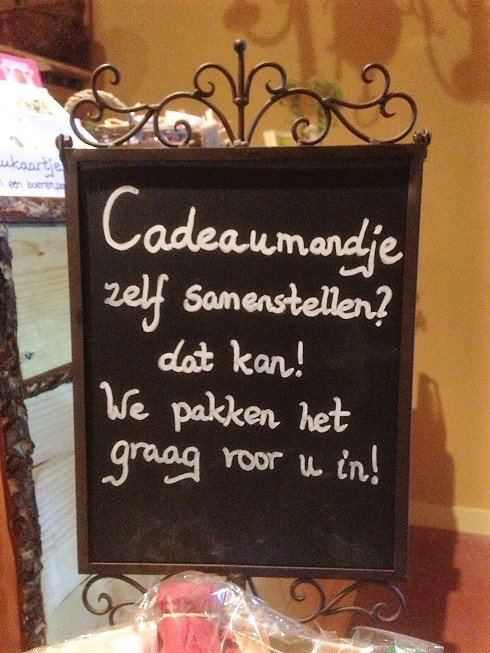 ukaartje
n een boeren
Cadeaumandje
zelf samenstellen?
dat kan!
We pakken het
graag voor u in!